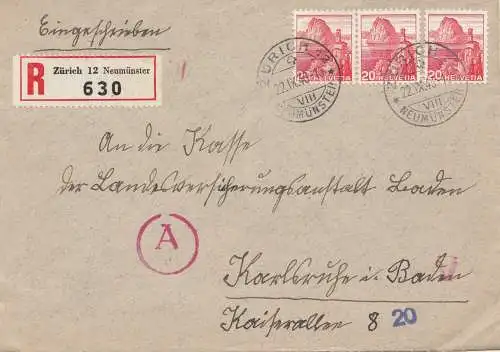 Eingeschrieben
R
Zürich 12 Neumünster
630
20 HELVETIA
20 HELVETIA
20 HELVETIA
ZÜRICH
VIII
NEUMÜNSTER
ZÜRICH
VIII
NEUMÜNSTER
An die Kasse
der Landesversicherungsanstalt Baden
A
Karlsruhe i. Baden
Kaiserallee 8 20